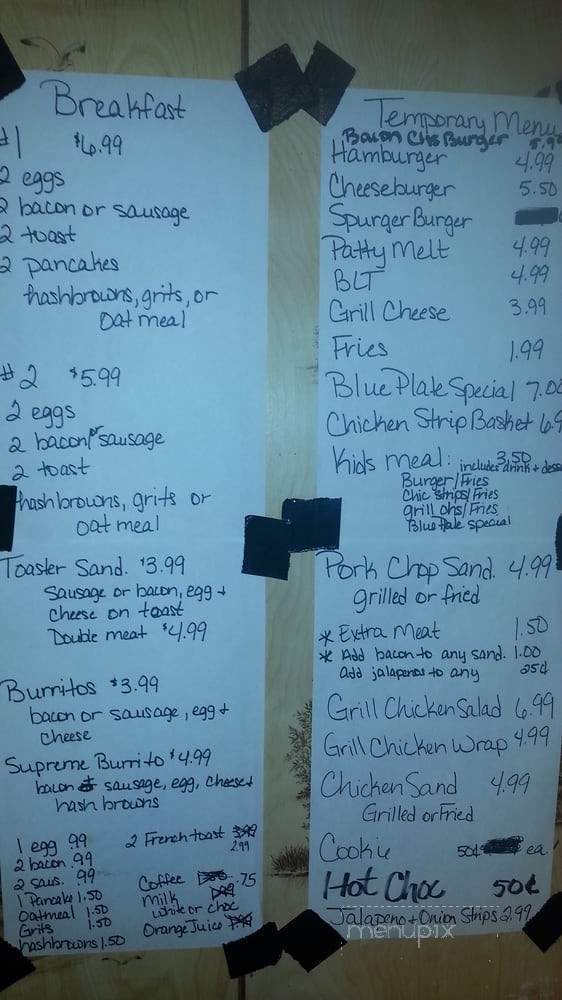 Breakfast
#1 $6.99
2 eggs
2 bacon or sausage
2 toast
2 pancakes
hashbrowns, grits, or
Oatmeal
#2 $5.99
2 eggs
2 bacon or sausage
2 toast
hashbrowns, grits or
oatmeal
Toaster Sand. $3.99
Sausage or bacon, egg +
Cheese on toast
Double meat $4.99
Burritos $3.99
bacon or sausage, egg +
Cheese
Supreme Burrito $4.99
bacon sausage, egg, cheese +
hash browns
1 egg .99
2 bacon .99
2 saus. .99
1 Pancake 1.50
Oatmeal 1.50
Grits 1.50
hashbrowns 1.50
2 French toast 2.99
Coffee .75
Milk
white or choc
Orange Juice
Temporary Menu
Bacon Chs Burger
Hamburger 4.99
Cheeseburger 5.50
Spurger Burger
Patty Melt 4.99
BLT 4.99
Grill Cheese 3.99
Fries 1.99
Blue Plate Special 7.00
Chicken Strip Basket
Kids meal: 3.50
includes drink + dess
Burger/Fries
Chic Strips/Fries
grill chs/Fries
Blue Plate special
Pork Chop Sand. 4.99
grilled or fried
* Extra Meat 1.50
* Add bacon to any sand. 1.00
add jalapenos to any 25¢
Grill Chicken Salad 6.99
Grill Chicken Wrap 4.99
Chicken Sand 4.99
Grilled or Fried
Cookie 50¢ ea
Hot Choc 50¢
Jalapeno + Onion Strips 2.99
menupix